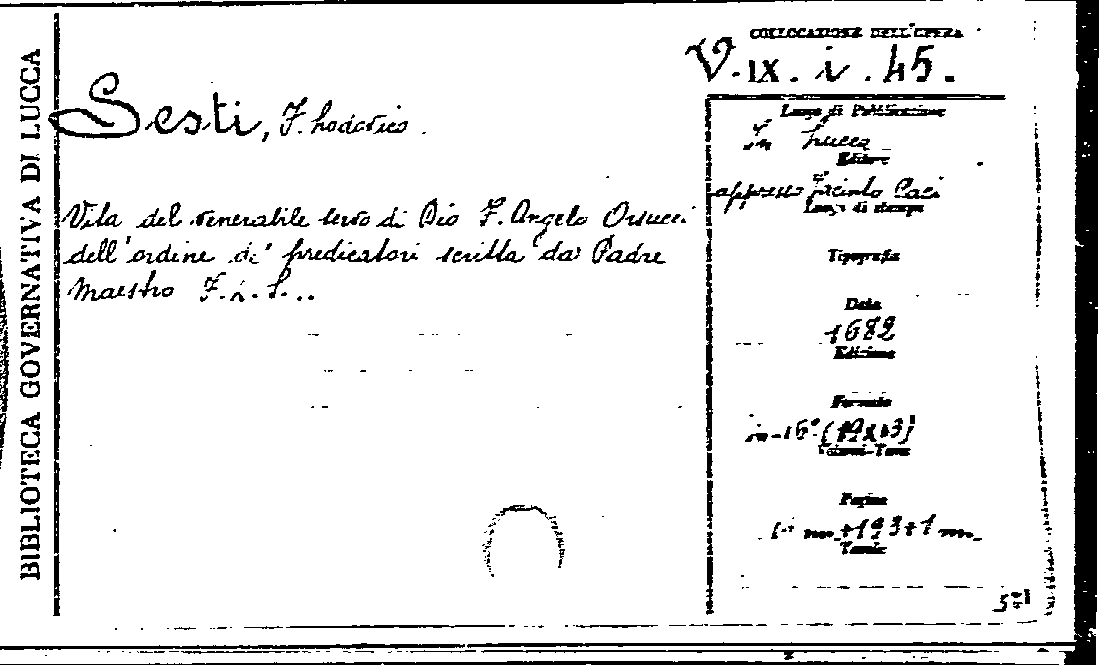 BIBLIOTECA GOVERNATIVA DI LUCCA
COLLOCAZIONE DELL'OPERA
V. IX. i. 45.
Sesti, F. Lodovico.
Vita del venerabile servo di Dio F. Angelo Orsucci
dell'ordine de' predicatori scritta da Padre
Maestro F. L. S...
Luogo di Pubblicazione
In Lucca
Editore
appresso Jacinto Paci
Luogo di stampa
Tipografia
Data
1682
Edizione
Formato
in-16° (19x13)
Volumi-Tomi
Pagine
+193+1
Tavole